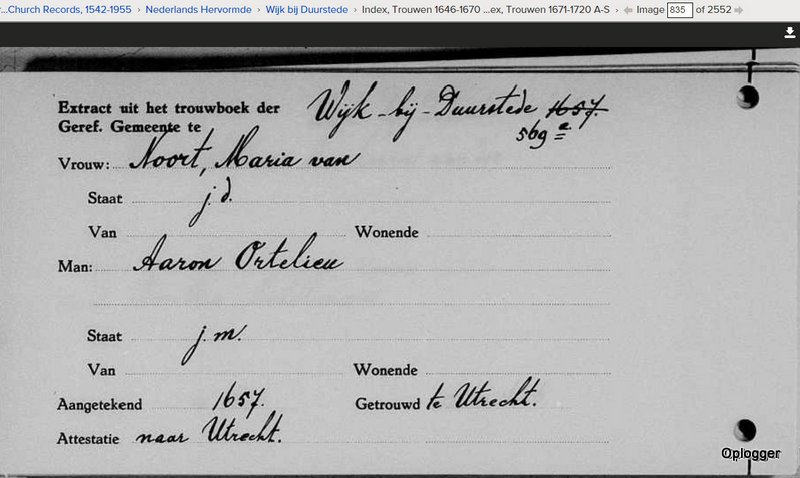 ...Church Records, 1542-1955 › Nederlands Hervormde › Wijk bij Duurstede › Index, Trouwen 1646-1670 ...ex, Trouwen 1671-1720 A-S › Image 835 of 2552
Extract uit het trouwboek der
Geref. Gemeente te Wijk-bij-Duurstede 1657.
Vrouw: Noort, Maria van
Staat j.d.
Van Wonende
Man: Aaron Ortelieu
Staat j.m.
Van Wonende
Aangetekend 1657. Getrouwd te Utrecht.
Attestatie naar Utrecht.
Oplogger